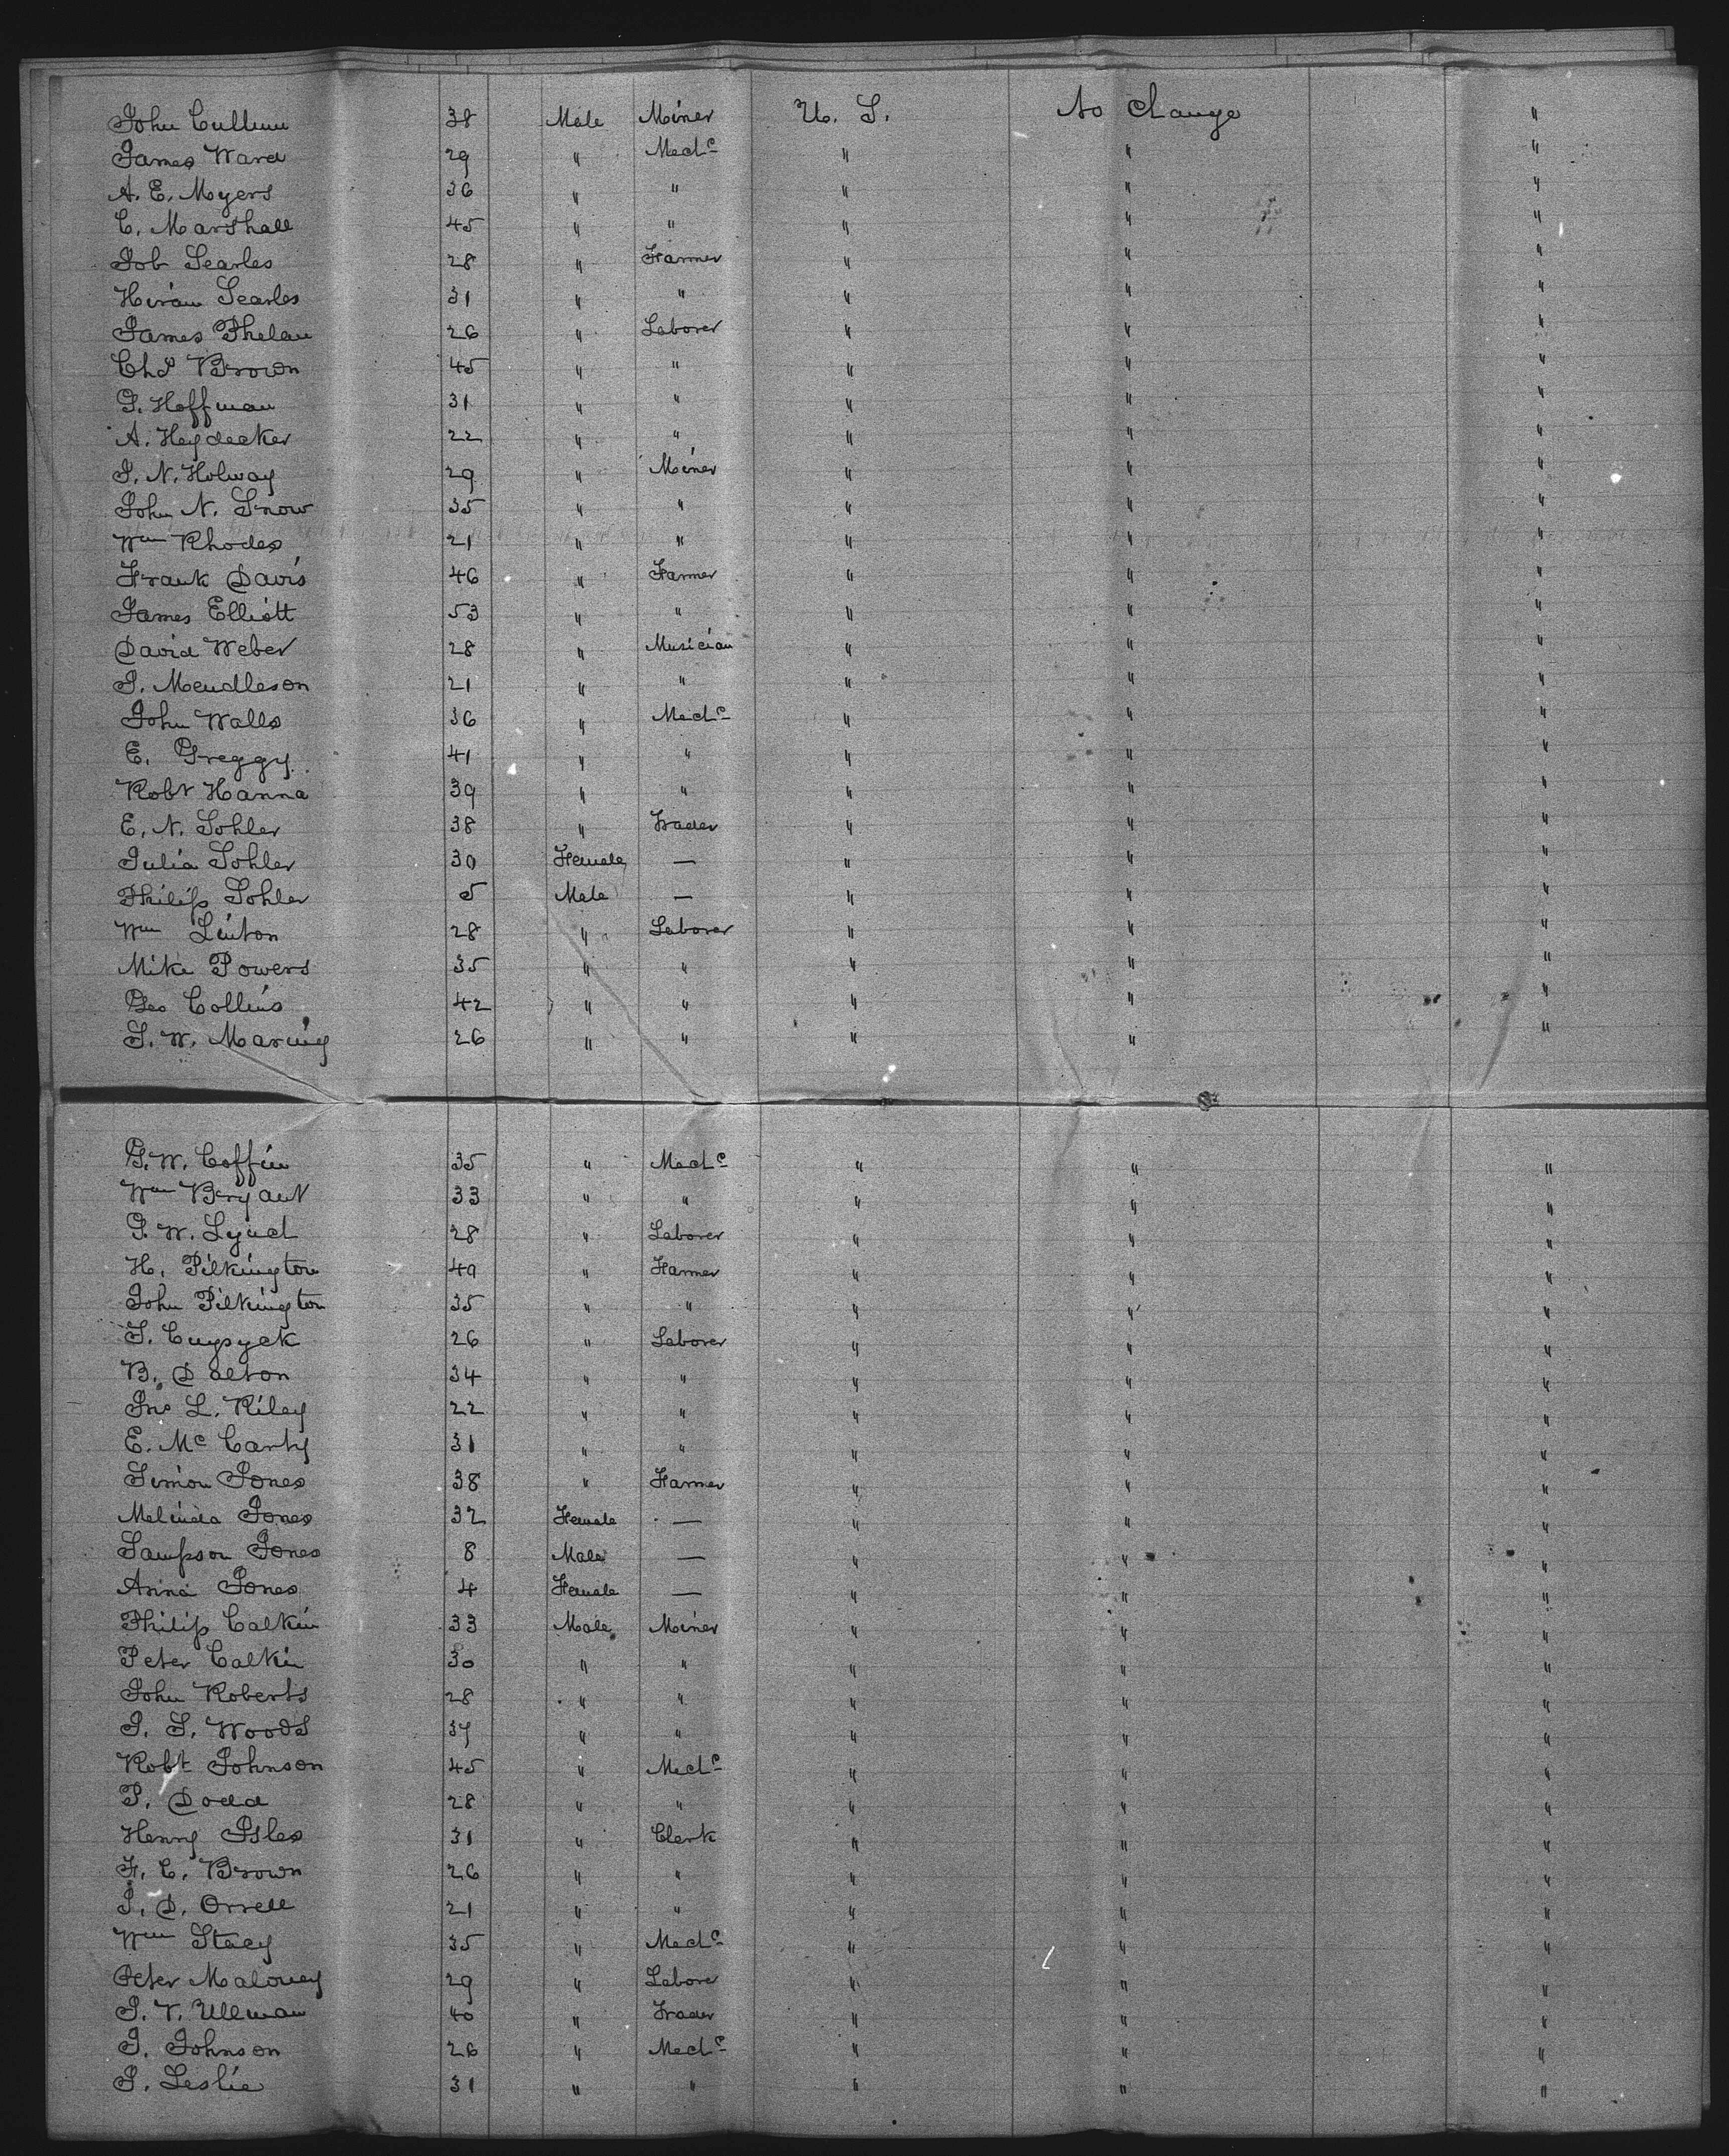 John Cullum 38 Male Miner U. S. No Change "
James Ward 29 " Mech<sup>c</sup> " " "
A. E. Myers 36 " " " " "
C. Marshall 45 " " " " "
Job Searles 28 " Farmer " " "
Hiram Searles 31 " " " " "
James Phelan 26 " Laborer " " "
Chs Brown 45 " " " " "
G. Hoffman 31 " " " " "
A. Heydecker 22 " " " " "
J. N. Holway 29 " Miner " " "
John N. Snow 35 " " " " "
Wm Rhodes 21 " " " " "
Frank Davis 46 " Farmer " " "
James Elliott 53 " " " " "
David Weber 28 " Musician " " "
J. Mendleson 21 " " " " "
John Walls 36 " Mechc " " "
E. Greggy 41 " " " " "
Robt Hanna 39 " " " " "
E. N. Sohler 38 " Trader " " "
Julia Sohler 30 Female — " " "
Philip Sohler 5 Male — " " "
Wm Linton 28 " Laborer " " "
Mike Powers 35 " " " " "
Geo Collins 42 " " " " "
S. W. Maring 26 " " " " "
G. W. Coffin 35 " Mechc " " "
Wm Bryant 33 " " " " "
G. W. Lynch 28 " Laborer " " "
H. Pilkington 49 " Farmer " " "
John Pilkington 35 " " " " "
S. 26 " Laborer " " "
B. Dalton 34 " " " " "
Jno L. Riley 22 " " " " "
E. Mc Carty 31 " " " " "
Simon Jones 38 " Farmer " " "
Melinda Jones 32 Female — " " "
Sampson Jones 8 Male — " " "
Anna Jones 4 Female — " " "
Philip Calkin 33 Male Miner " " "
Peter Calkin 30 " " " " "
John Roberts 28 " " " " "
J. S. Woods 37 " " " " "
Robt Johnson 45 " Mechc " " "
P. Dodd 28 " " " " "
Henry Isles 31 " Clerk " " "
F. C. Brown 26 " " " " "
J. D. Orrell 21 " " " " "
Wm Stacy 35 " Mechc " " "
Peter Maloney 29 " Laborer " " "
J. V. Ullman 40 " Trader " " "
J. Johnson 26 " Mechc " " "
J. Leslie 31 " " " " "